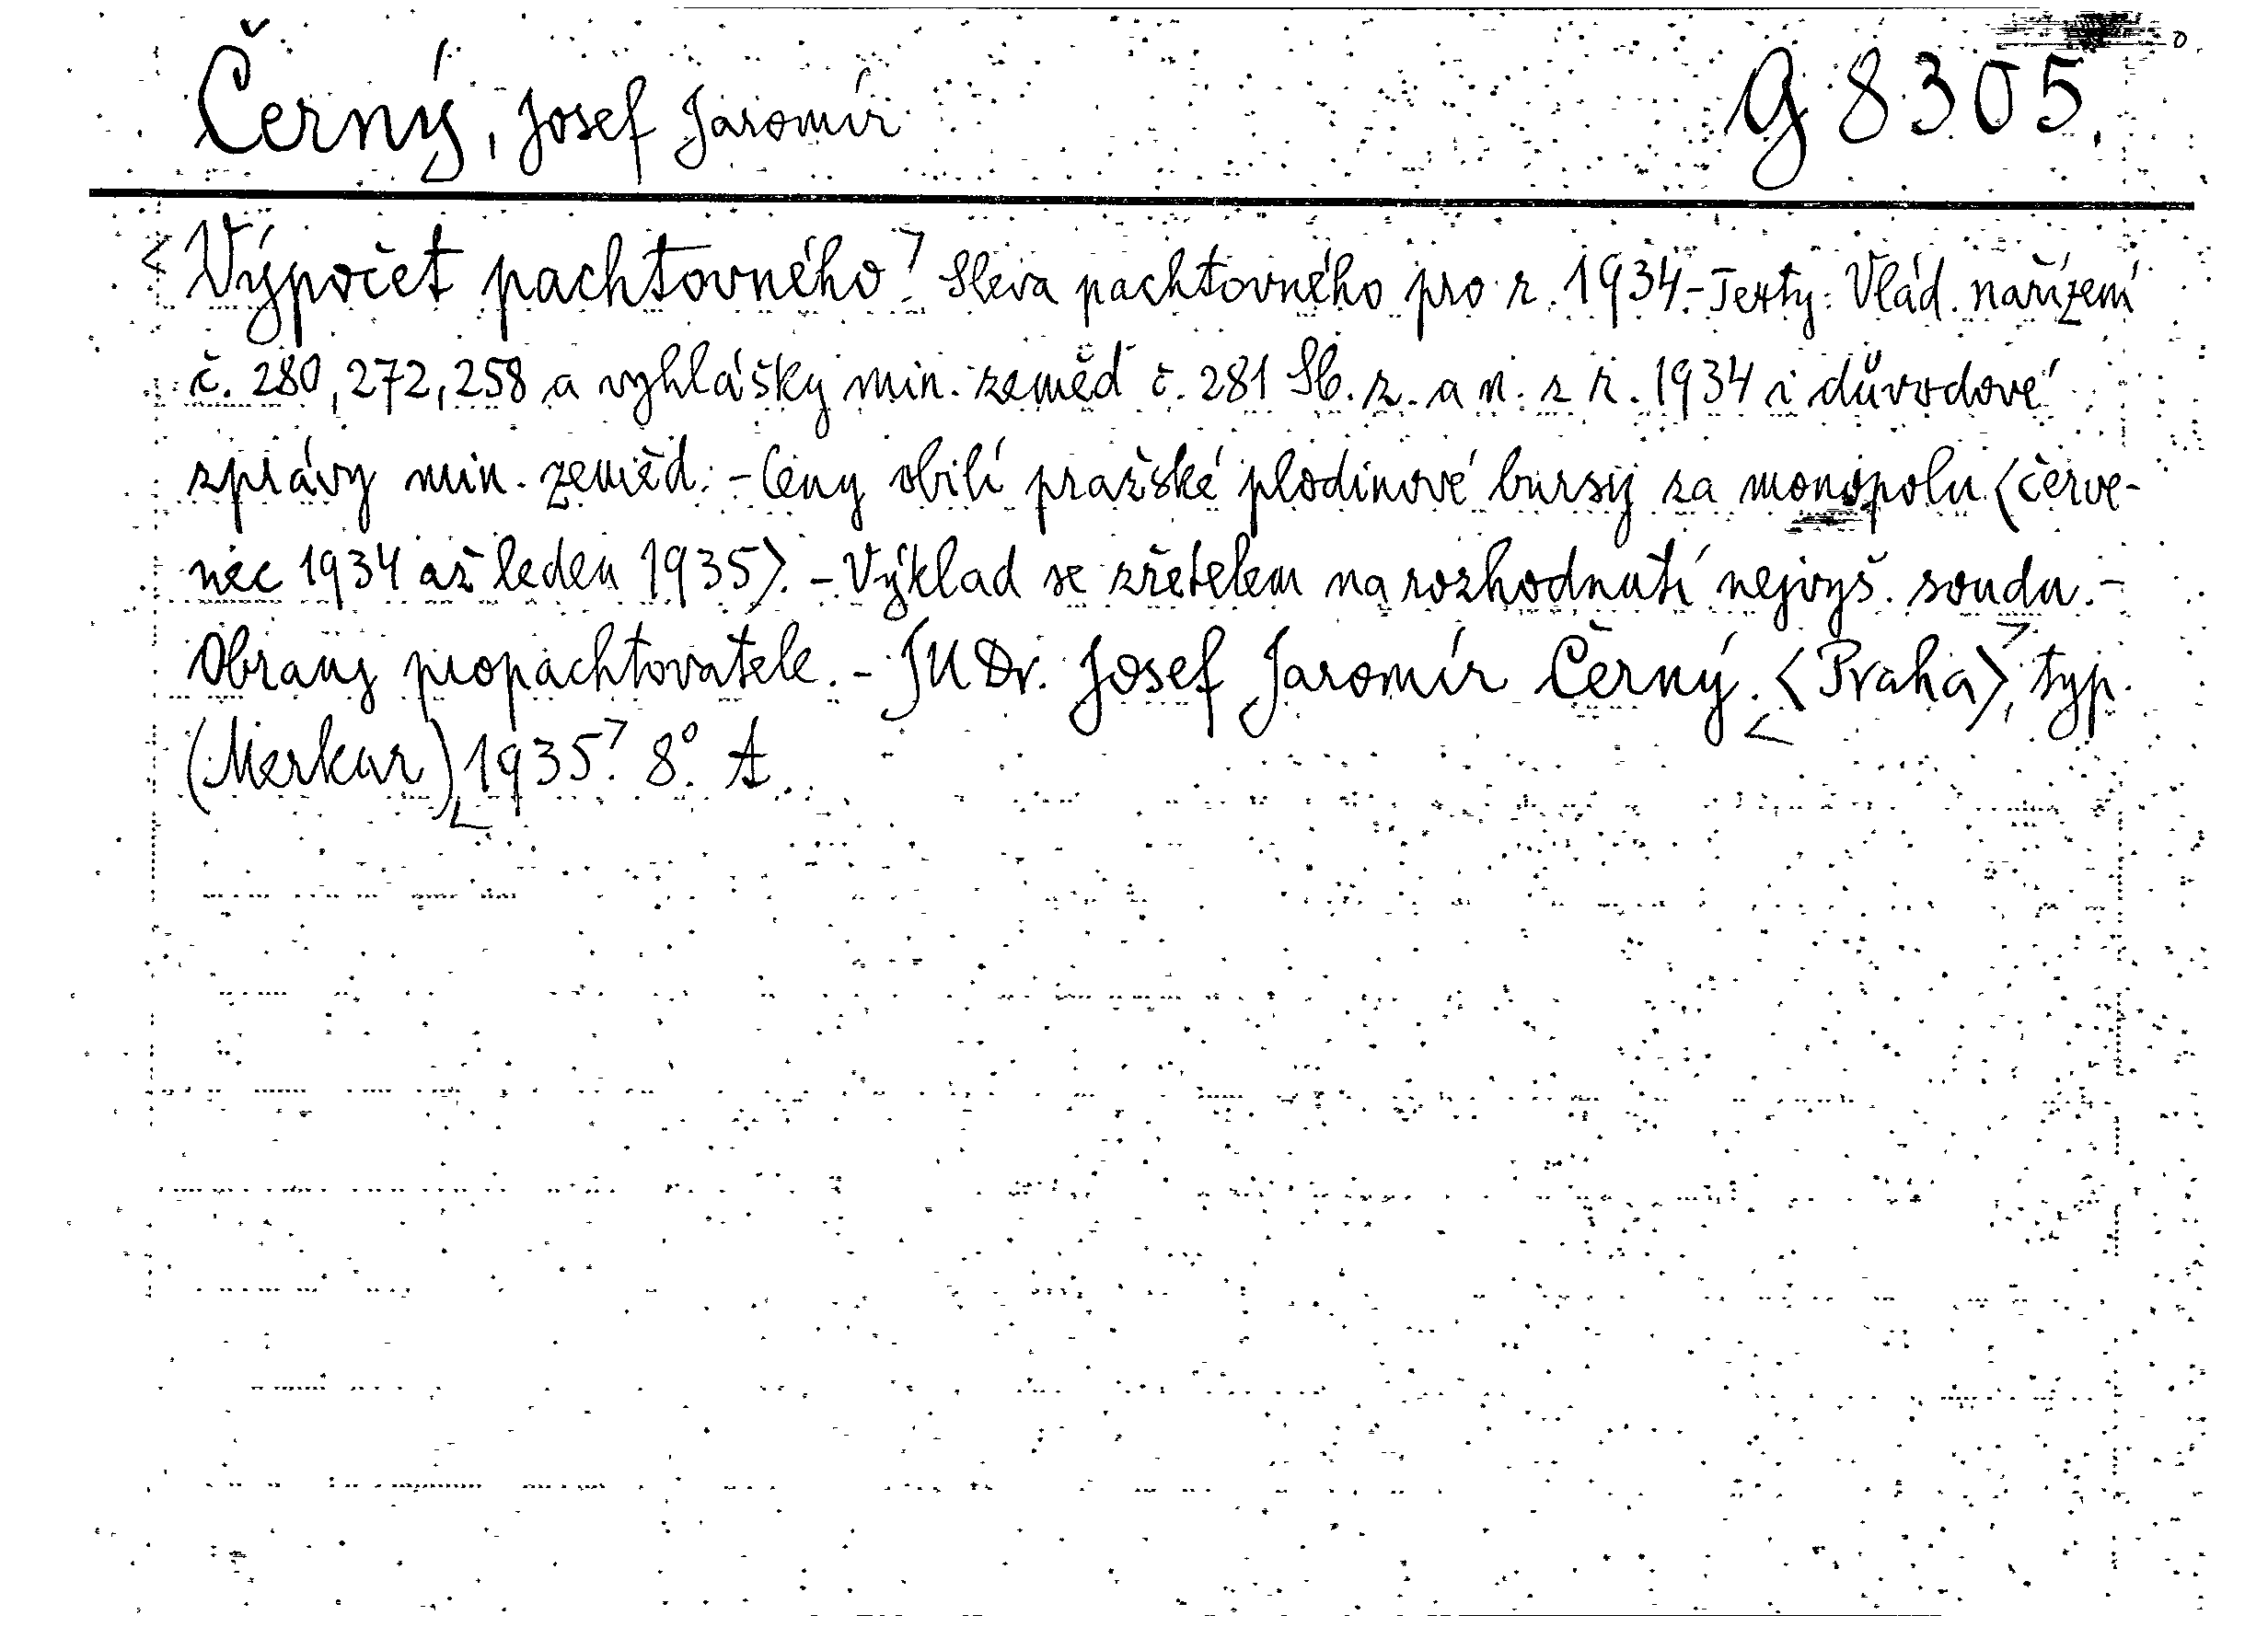 Černý, Josef Jaromír G 8305.
<Výpočet pachtovného>. Sleva pachtovného pro r. 1934.- Texty: Vlád. nařízení
č. 280, 272, 258 a vyhlášky min. zeměd č. 281 Sb. z. a n. z r. 1934 i důvodové
zprávy min. zeměd. - Ceny obilí pražské plodinové bursy za monopolu <červe-
nec 1934 až leden 1935>. - Výklad se zřetelem na rozhodnutí nejvyš. soudu. -
Obrany propachtovatele. - JUDr. Josef Jaromír Černý. <Praha>, typ.
(Merkur) 1935. 8° A